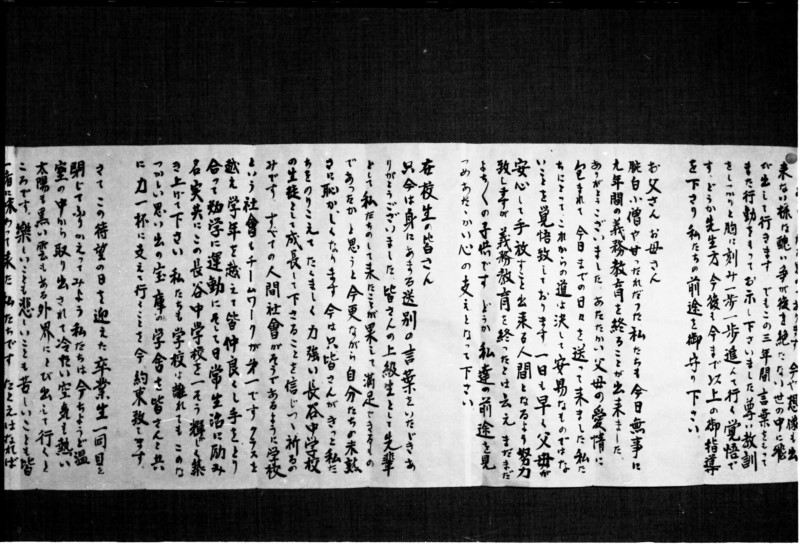 来ない様な醜い争が後を絶たない世の中に飛
が出して行きます でもこの三年間言葉をもって
また行動をもってお示し下さいました尊い教訓
をしっかりと胸に刻み一歩一歩進んで行く覚悟で
す。どうか先生方 今後も今まで以上の御指導
を下さり私たちの前途を御守り下さい
お父さんお母さん
腕白小僧や甘ったれだった私たちも今日無事に
九年間の義務教育を終ることが出来ました。
ありがとうございました。あたたかい父母の愛情に
包まれて今日までの日々を送って来ました私た
ちにとってこれからの道は決して安易なものではな
いことを覚悟致しております 一日も早く父母が
安心して手放すことを出来る人間となるよう努力
致しますが義務教育は終ったとは云えまだまだ
よちよちの子供です どうか私達の前途を見
つめあたゝかい心の支えとなって下さい
在校生の皆さん
只今は身にあまる送別の言葉をいたゞきあ
りがとうございました。皆さんの上級生として先輩
として私たちのして来たことが果して満足できるもの
であったかと思うと今更ながら自分たちの未熟
さに恥かしくなります 今は只皆さんがきっと私た
ちをのりこえてたくましく力強い長谷中学校
の生徒として成長して下さることを信じつゝ祈るの
みです すべての人間社會がそうであるように学校
という社會もチームワークが第一です クラスを
越え学年を越えて皆仲良くし手をとり
合って勉学に運動にそして日常生活に励み
名実共にこの長谷中学校を一そう輝かしく築
き上げて下さい 私たちも学校は離れてもこのな
つかしい思い出の宝庫の学舎を皆さんと共
に力一杯に支えて行くことを今約束致します。
さてこの待望の日を迎えた卒業生一同目を
閉じてふりかえってみよう 私たちは今ちょうど温
室の中から取り出されて冷たい空気も熱い
太陽も黒い雲もある外界にとび出して行くと
ころです。楽しいことも悲しいことも苦しいことも皆
一緒に味わって来た私たちです たとえはなれば